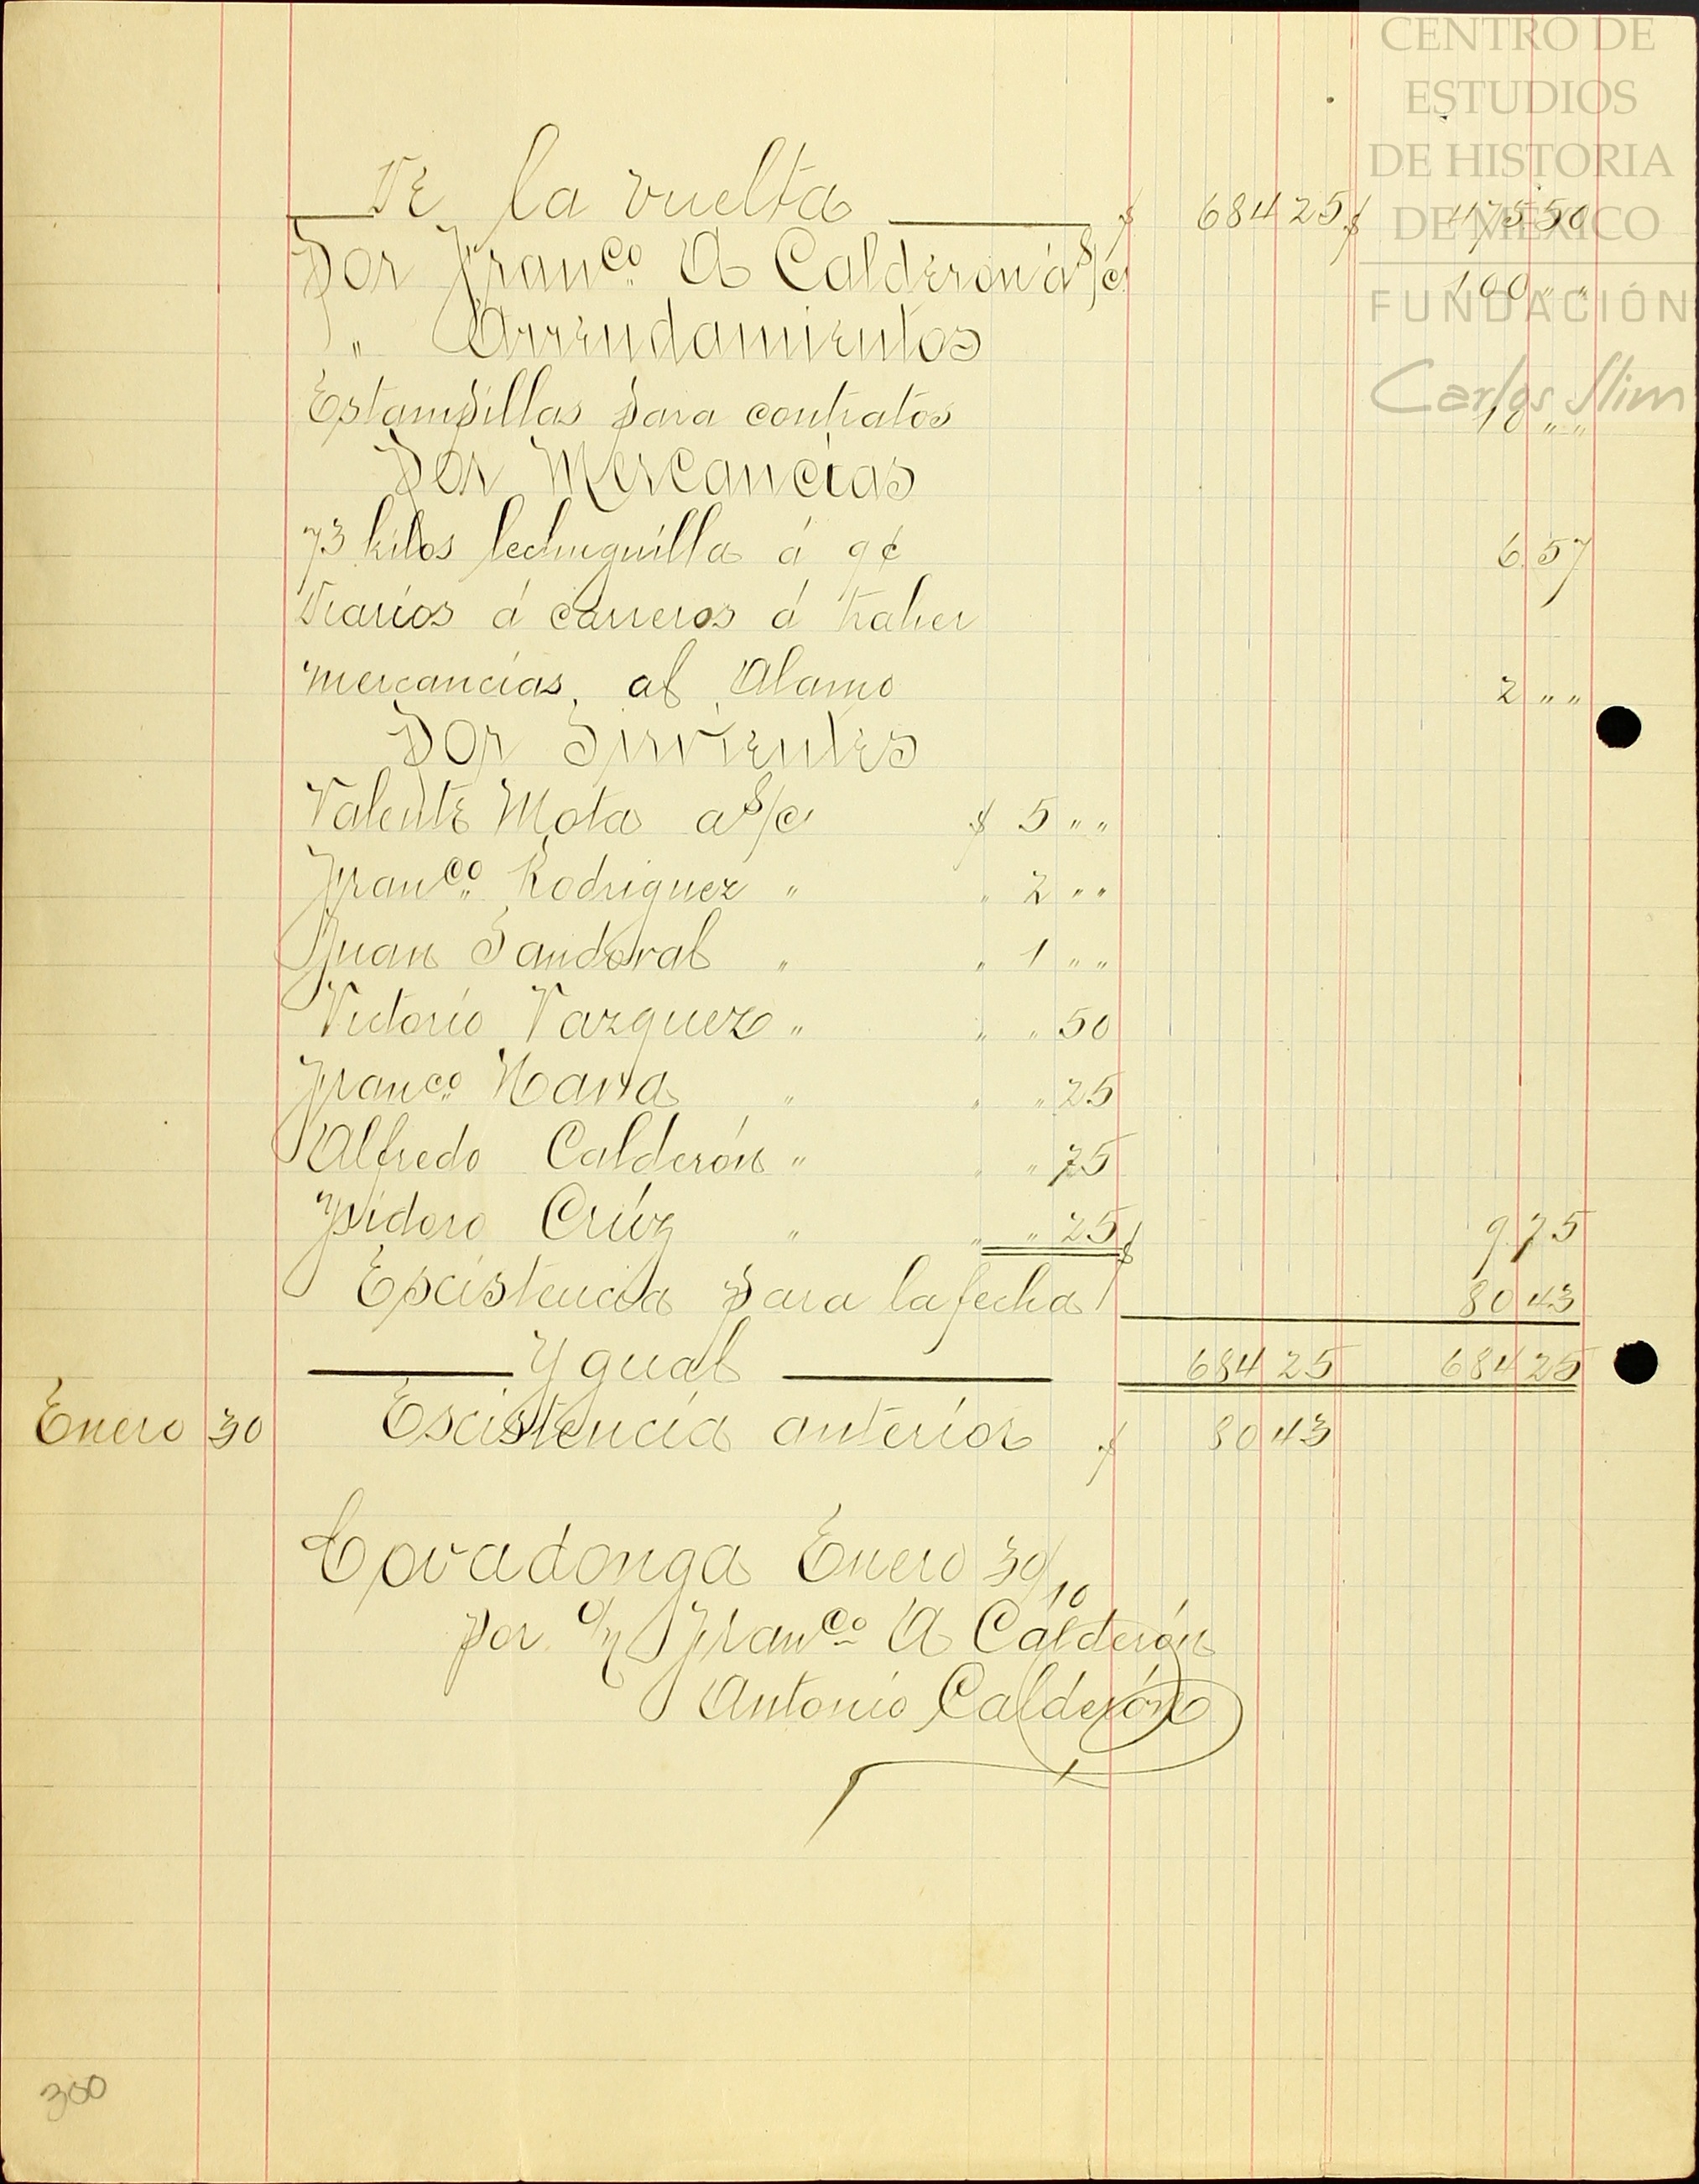 CENTRO DE
ESTUDIOS
DE HISTORIA
DE MÉXICO
FUNDACIÓN
Carlos Slim
De la vuelta $ 684 25 $ 475 50
Por Franco. A Calderon á s/c 100 " "
" Arrendamientos
Estampillas para contratos 10 " "
Por Mercancias
73 kilos lechuguilla á 9¢ 6 57
Diarios á carreros á traher
mercancias, al Alamo 2 " "
Por Sirvientes
Valente Mota a s/c $ 5 " "
Franco. Rodriguez " " 2 " "
Juan Sandoval " " 1 " "
Victorio Vazquez " " " 50
Franco. Nava " " " 25
Alfredo Calderón " " " 75
Ysidoro Crúz " " " 25 $ 9 75
Escistencia para la fecha 80 43
Ygual 684 25 684 25
Enero 30 Escistencia anterior $ 80 43
Covadonga Enero 30/10
por o/n Franco A Calderón
Antonio Calderón
300